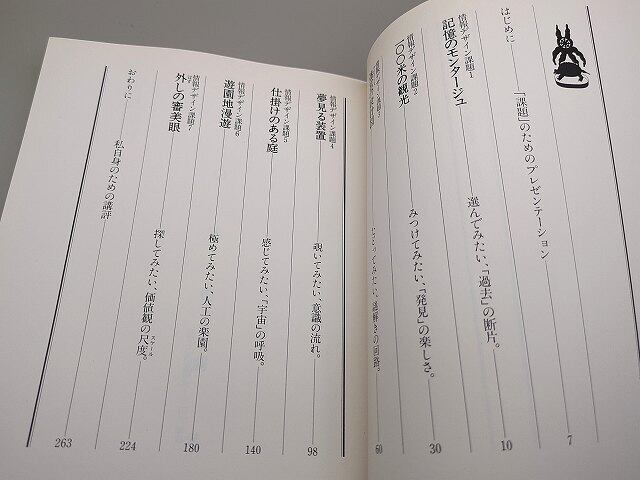 はじめに──「課題」のためのプレゼンテーション 7
情報デザイン課題1
記憶のモンタージュ 選んでみたい、「過去」の断片。 10
情報デザイン課題2
一〇〇米の観光 みつけてみたい、「発見」の楽しさ。 30
情報デザイン課題3
たどってみたい、謎解きの回路。 60
情報デザイン課題4
夢見る装置 覗いてみたい、意識の流れ。 98
情報デザイン課題5
仕掛けのある庭 感じてみたい、「宇宙」の呼吸。 140
情報デザイン課題6
遊園地漫遊 極めてみたい、人工の楽園。 180
情報デザイン課題7
外しの審美眼 探してみたい、価値観の尺度。 224
スケール
おわりに──私自身のための講評 263